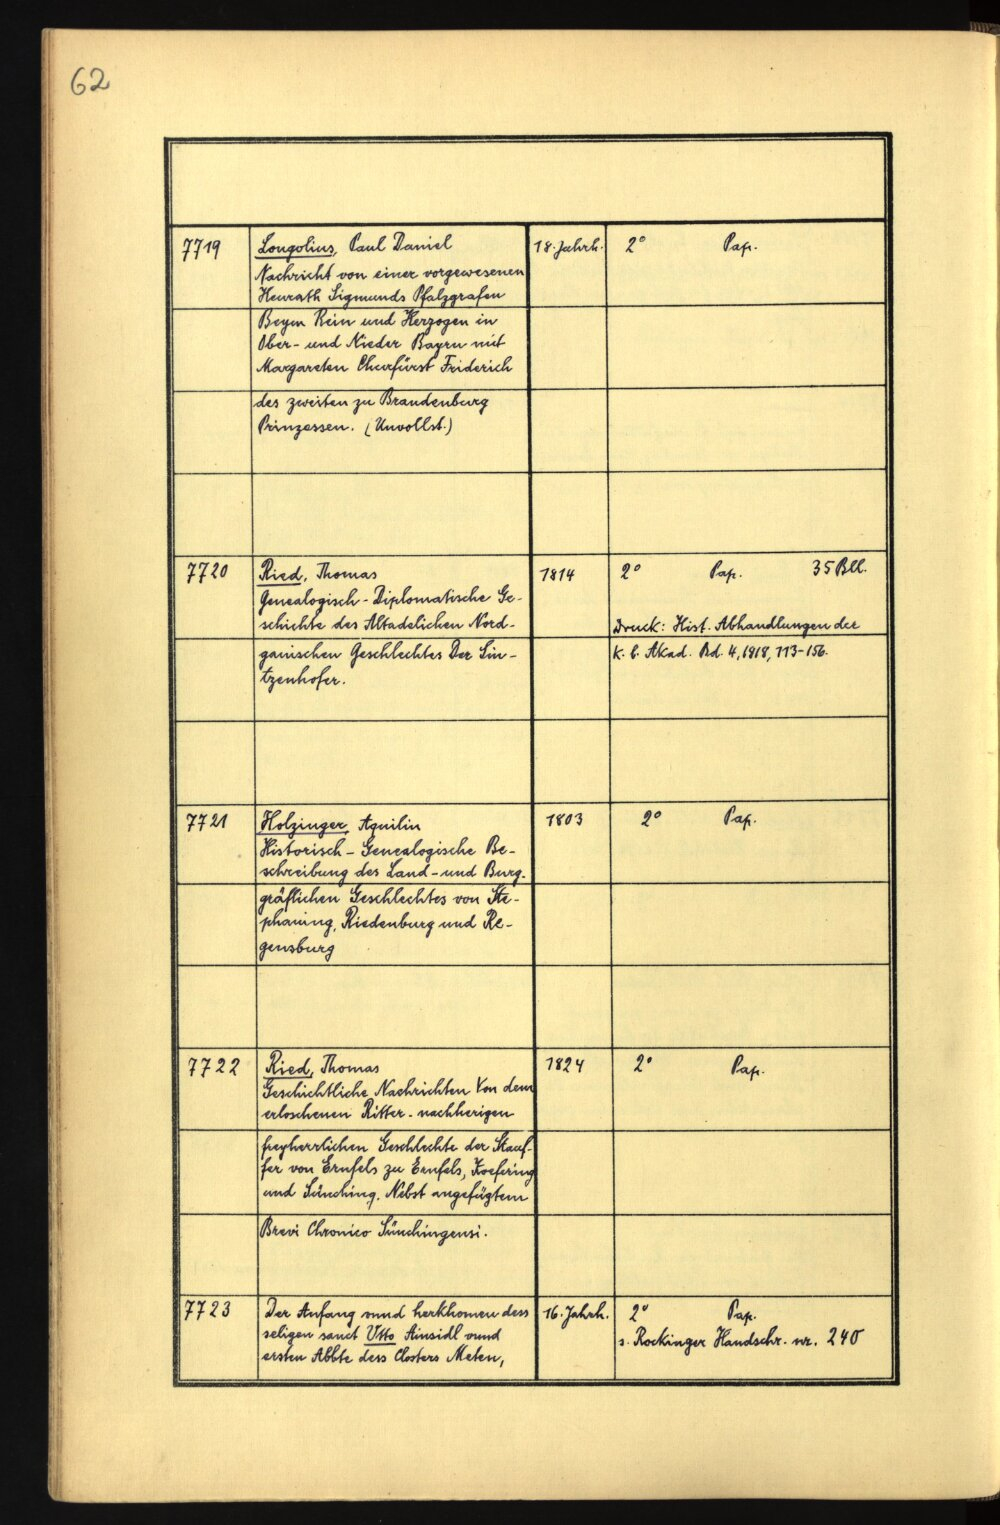 62
7719 Longolius, Paul Daniel 18. Jahrh. 2° Pap.
Nachricht von einer vorgewesenen
Heurath Sigmunds Pfalzgrafen
Beym Rein und Herzogen in
Ober- und Nieder Bayrn mit
Margareten Churfürst Friderich
des zweiten zu Brandenburg
Prinzessen. (Unvollst.)
7720 Ried, Thomas 1814 2° Pap. 35 Bll.
Genealogisch-Diplomatische Ge-
schichte des Altadelichen Nord- Druck: Hist. Abhandlungen der
gauischen Geschlechtes Der Sin- K. b. Akad. Bd. 4, 1818, 113-156.
tzenhofer.
7721 Holzinger, Aquilin 1803 2° Pap.
Historisch-Genealogische Be-
schreibung des Land- und Burg-
gräflichen Geschlechtes von Ste-
phaning, Riedenburg und Re-
gensburg
7722 Ried, Thomas 1824 2° Pap.
Geschichtliche Nachrichten Von dem
erloschenen Ritter- nachherigen
freyherrlichen Geschlechte der Stauf-
fer von Ernfels zu Ernfels, Koefering
und Sünching. Nebst angefügtem
Brevi Chronico Sünchingensi.
7723 Der Anfang vnnd herkhomen dess 16. Jahrh. 2° Pap.
seligen sanct Vtto Ainsidl vnnd s. Rockinger Handschr. nr. 240
ersten Abbte dess Closters Meten,